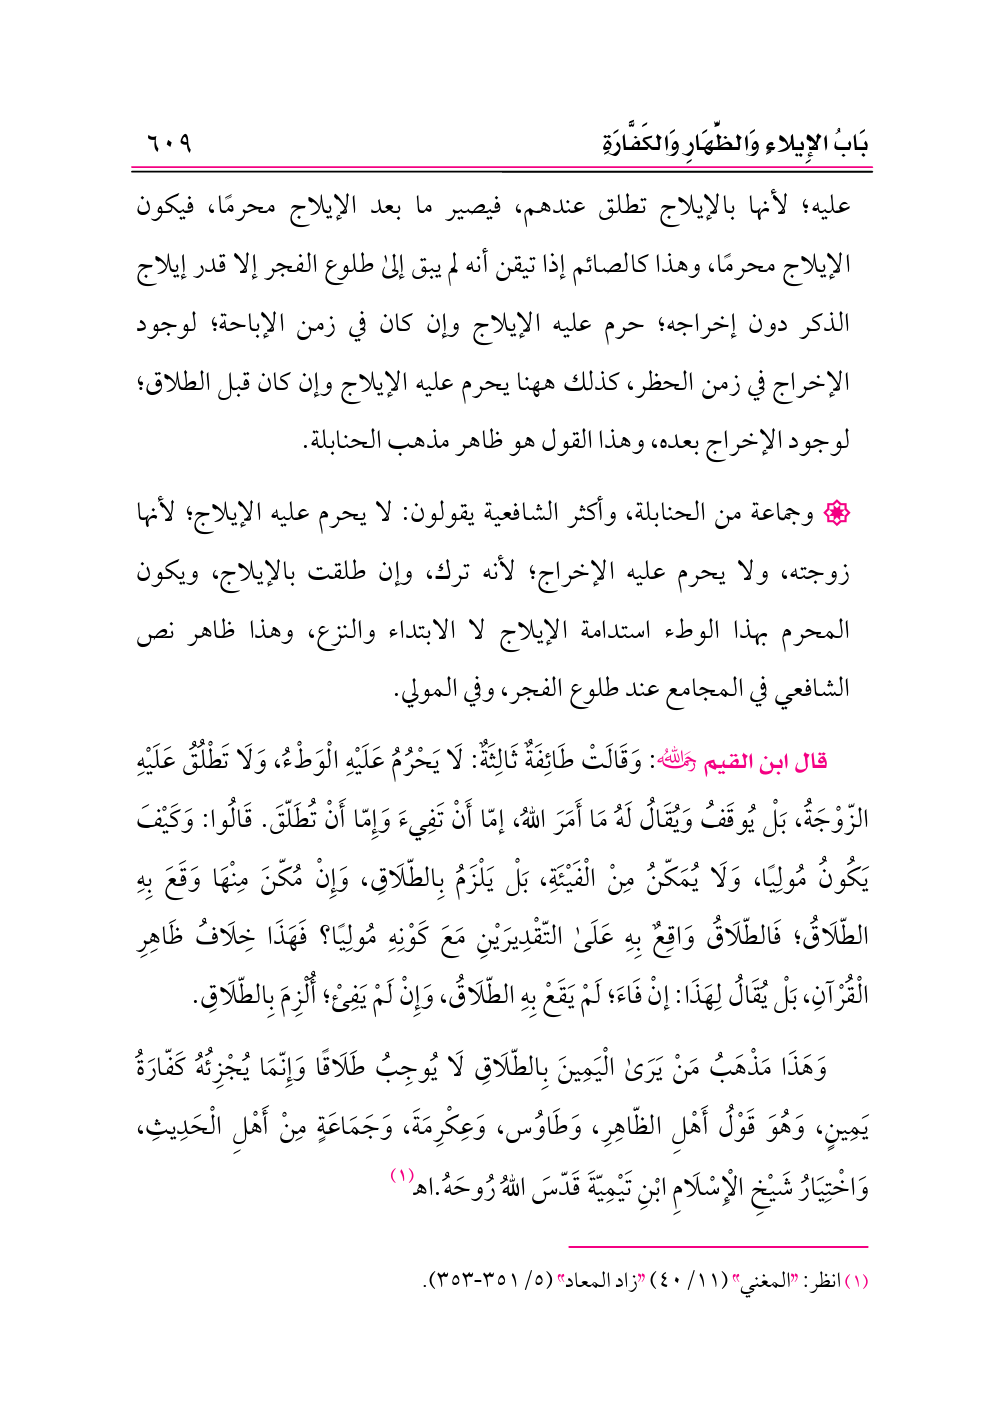 بَابُ الإِيلاءِ وَالظِّهَارِ وَالكَفَّارَةِ ٦٠٩
عليه؛ لأنها بالإيلاج تطلق عندهم، فيصير ما بعد الإيلاج محرمًا، فيكون
الإيلاج محرمًا، وهذا كالصائم إذا تيقن أنه لم يبق إلىٰ طلوع الفجر إلا قدر إيلاج
الذكر دون إخراجه؛ حرم عليه الإيلاج وإن كان في زمن الإباحة؛ لوجود
الإخراج في زمن الحظر، كذلك ههنا يحرم عليه الإيلاج وإن كان قبل الطلاق؛
لوجود الإخراج بعده، وهذا القول هو ظاهر مذهب الحنابلة.
وجماعة من الحنابلة، وأكثر الشافعية يقولون: لا يحرم عليه الإيلاج؛ لأنها
زوجته، ولا يحرم عليه الإخراج؛ لأنه ترك، وإن طلقت بالإيلاج، ويكون
المحرم بهذا الوطء استدامة الإيلاج لا الابتداء والنزع، وهذا ظاهر نص
الشافعي في المجامع عند طلوع الفجر، وفي المولي.
قال ابن القيم رحمه الله: وَقَالَتْ طَائِفَةٌ ثَالِثَةٌ: لَا يَحْرُمُ عَلَيْهِ الْوَطْءُ، وَلَا تَطْلُقُ عَلَيْهِ
الزّوْجَةُ، بَلْ يُوقَفُ وَيُقَالُ لَهُ مَا أَمَرَ اللهُ، إمّا أَنْ تَفِيءَ وَإِمّا أَنْ تُطَلّقَ. قَالُوا: وَكَيْفَ
يَكُونُ مُولِيًا، وَلَا يُمَكّنُ مِنْ الْفَيْئَةِ، بَلْ يَلْزَمُ بِالطّلَاقِ، وَإِنْ مُكّنَ مِنْهَا وَقَعَ بِهِ
الطّلَاقُ؛ فَالطّلَاقُ وَاقِعٌ بِهِ عَلَىٰ التّقْدِيرَيْنِ مَعَ كَوْنِهِ مُولِيًا؟ فَهَذَا خِلَافُ ظَاهِرِ
الْقُرْآنِ، بَلْ يُقَالُ لِهَذَا: إنْ فَاءَ؛ لَمْ يَقَعْ بِهِ الطّلَاقُ، وَإِنْ لَمْ يَفِئْ؛ أُلْزِمَ بِالطّلَاقِ.
وَهَذَا مَذْهَبُ مَنْ يَرَىٰ الْيَمِينَ بِالطّلَاقِ لَا يُوجِبُ طَلَاقًا وَإِنّمَا يُجْزِئُهُ كَفّارَةُ
يَمِينٍ، وَهُوَ قَوْلُ أَهْلِ الظّاهِرِ، وَطَاوُس، وَعِكْرِمَةَ، وَجَمَاعَةٍ مِنْ أَهْلِ الْحَدِيثِ،
وَاخْتِيَارُ شَيْخِ الْإِسْلَامِ ابْنِ تَيْمِيّةَ قَدّسَ اللهُ رُوحَهُ.اﻫ(١)
(١) انظر: "المغني" (١١/ ٤٠) "زاد المعاد" (٥/ ٣٥١-٣٥٣).